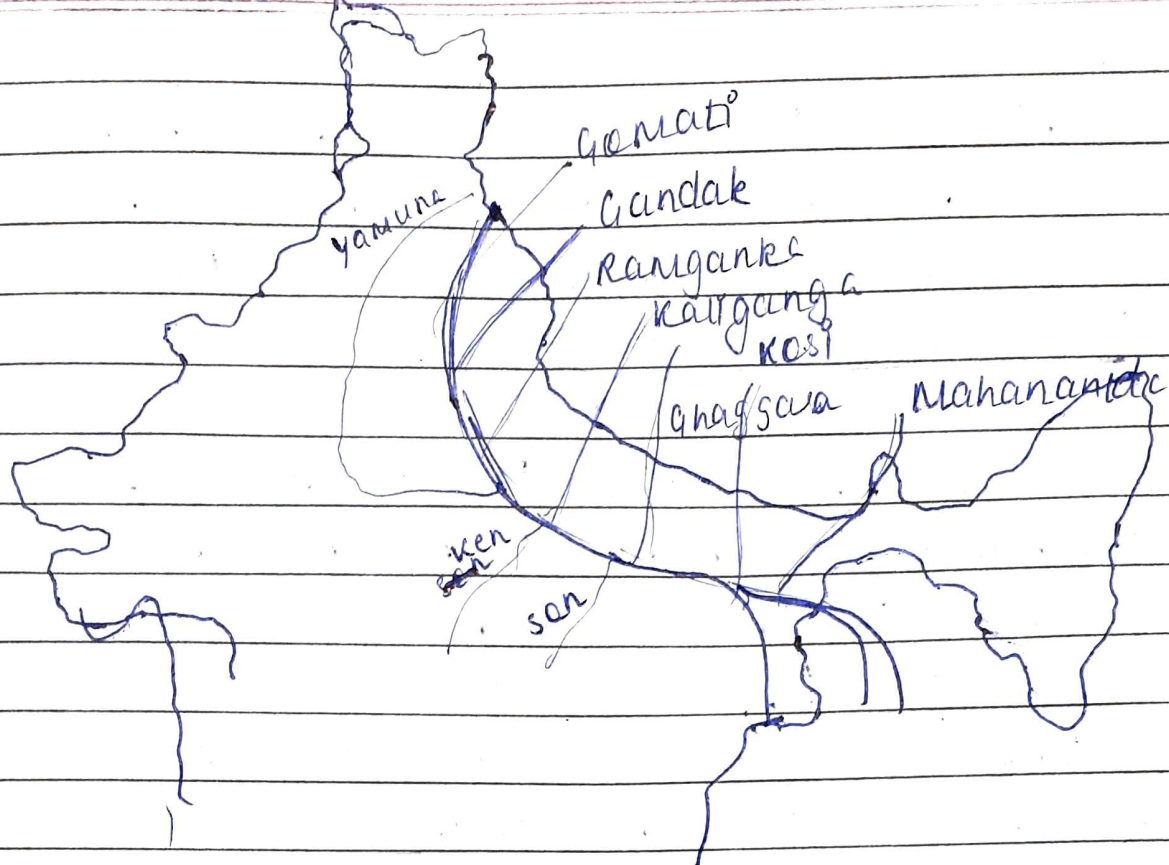 Gomati
Gandak
yamuna
Ramganka
Kaliganga
Kosi
Mahananda
Ghaggara
Ken
son